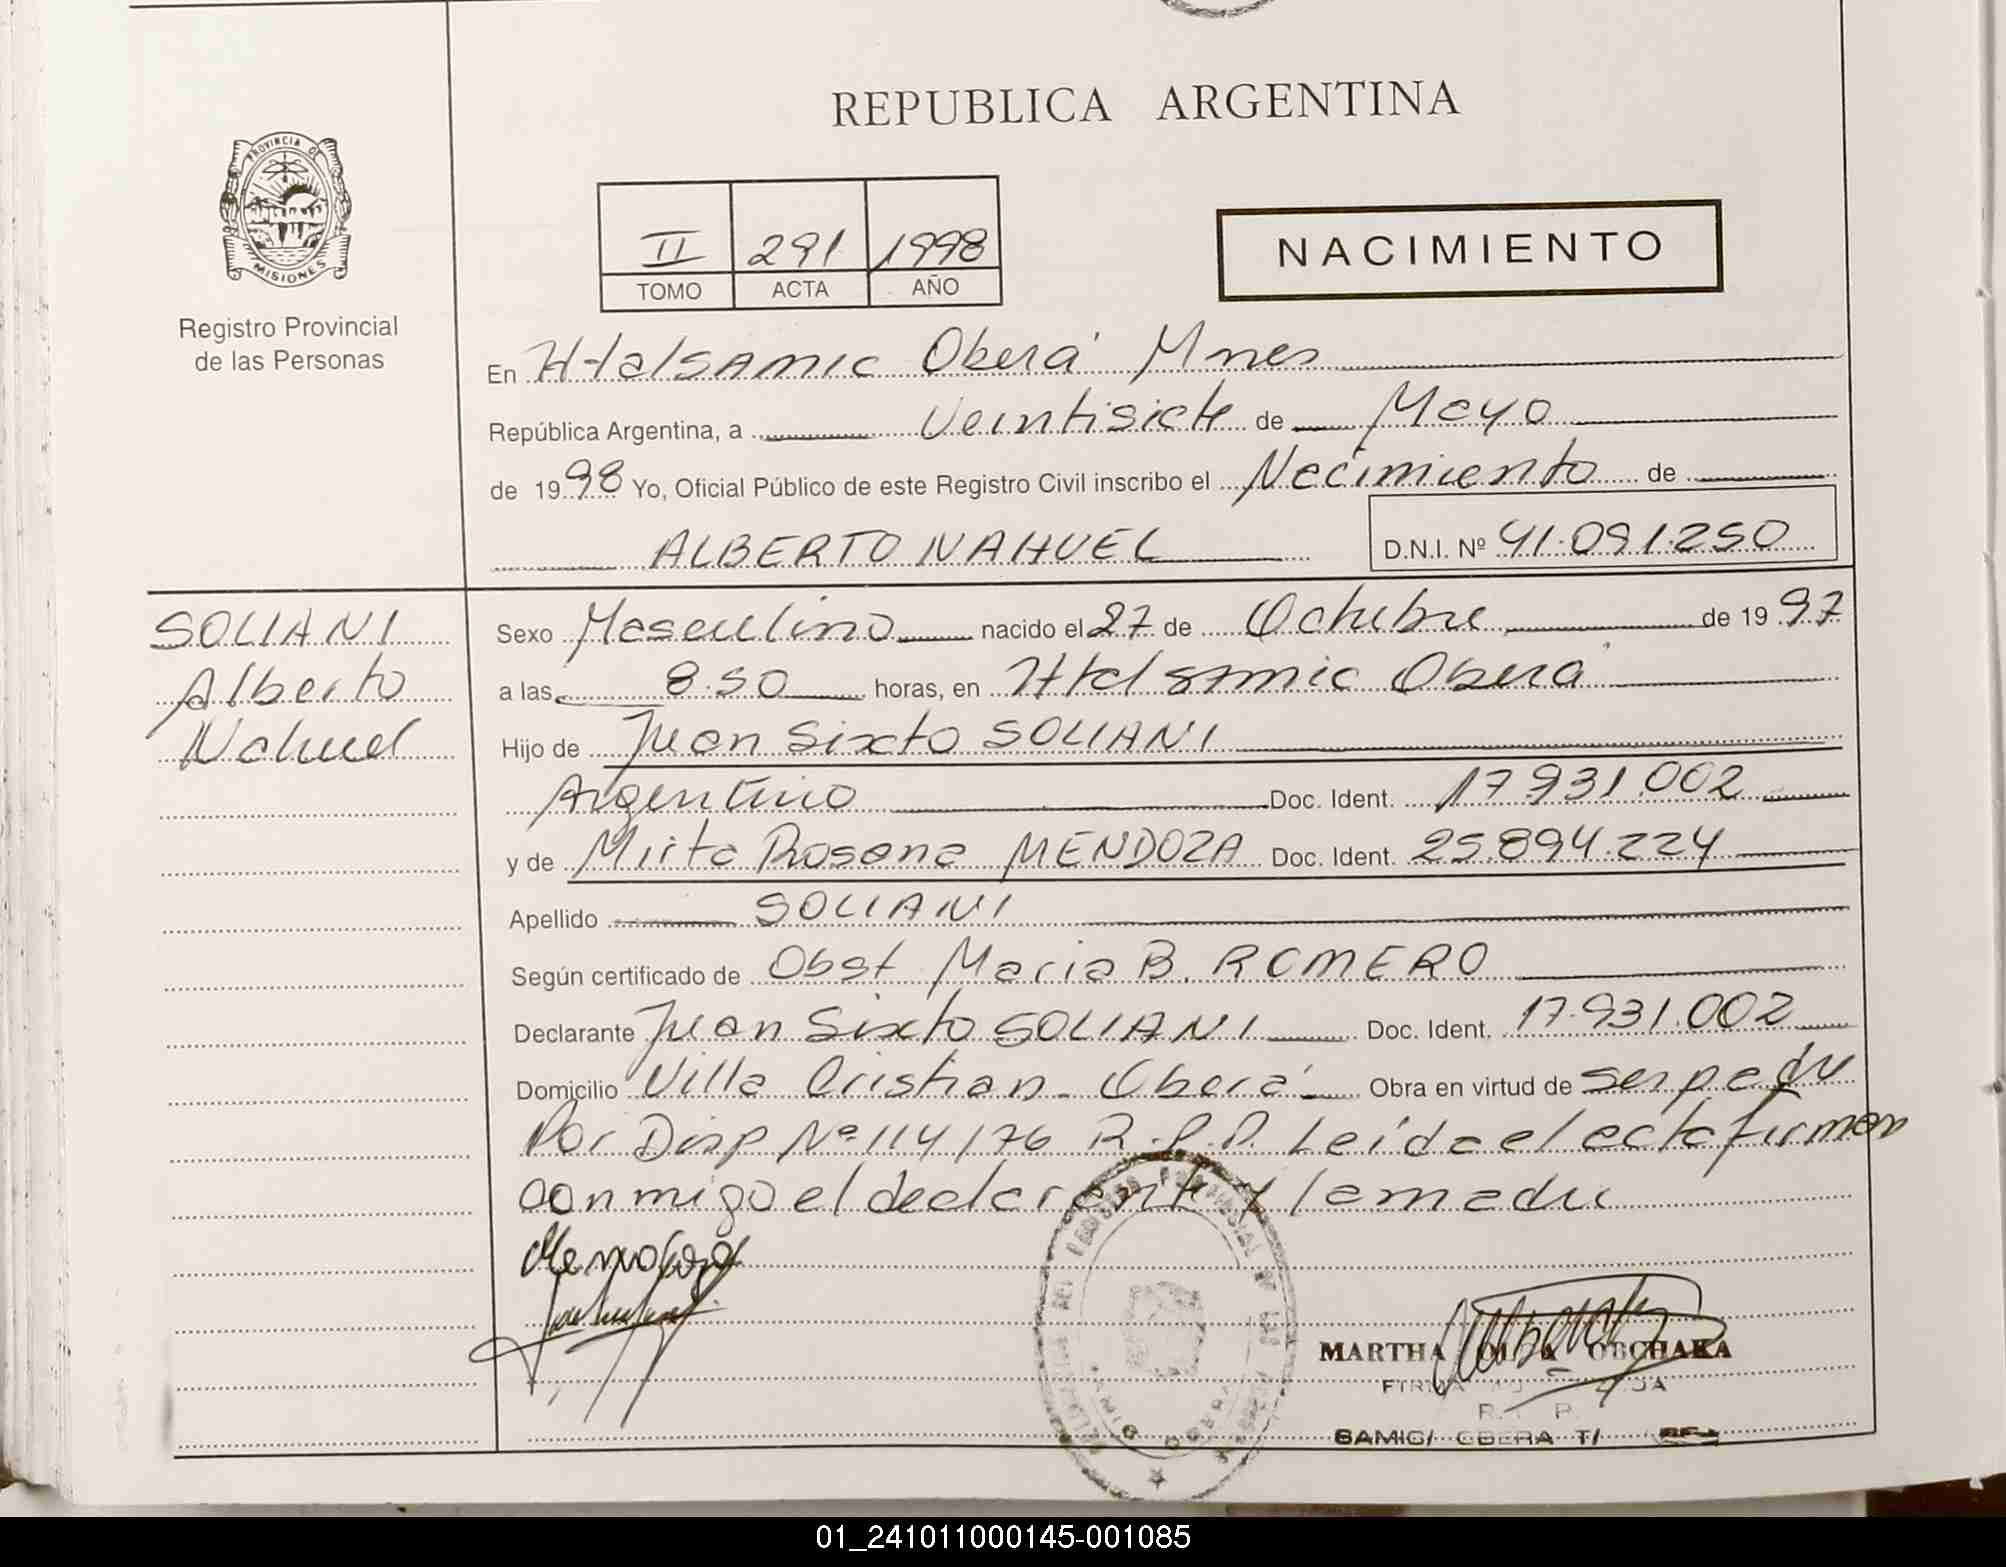 REPUBLICA ARGENTINA
PROVINCIA DE
MISIONES
Registro Provincial
de las Personas
II 291 1998
TOMO ACTA AÑO
NACIMIENTO
En Htalsamic Oberá Mnes
República Argentina, a Veintisiete de Mayo
de 1998 Yo, Oficial Público de este Registro Civil inscribo el Nacimiento de
ALBERTO NAHUEL D.N.I. Nº 41.091.250
SOLIANI
Alberto
Nahuel
Sexo Masculino nacido el 27 de Octubre de 1997
a las 8.50 horas, en Htal samic Oberá
Hijo de Juan Sixto SOLIANI
Argentino Doc. Ident. 17.931.002
y de Mirta Rosana MENDOZA Doc. Ident. 25.894.224
Apellido SOLIANI
Según certificado de Obst. Maria B. ROMERO
Declarante Juan Sixto SOLIANI Doc. Ident. 17.931.002
Domicilio Villa Cristian - Oberá Obra en virtud de ser padre
Por Disp Nº 114/76 R.P.P. Leída el acta firman
conmigo el declarante y la madre
MARTHA OLGA OBCHAKA
R. P.
SAMIC/ OBERA
01_241011000145-001085